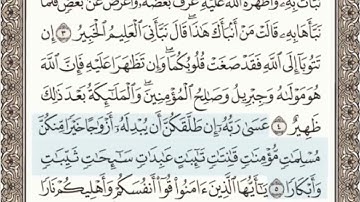 نَبَّأَتْ بِهِۦ وَأَظْهَرَهُ ٱللَّهُ عَلَيْهِ عَرَّفَ بَعْضَهُۥ وَأَعْرَضَ عَنۢ بَعْضٖۖ فَلَمَّا
نَبَّأَهَا بِهِۦ قَالَتْ مَنْ أَنۢبَأَكَ هَٰذَاۖ قَالَ نَبَّأَنِيَ ٱلْعَلِيمُ ٱلْخَبِيرُ ٣
إِن تَتُوبَآ إِلَى ٱللَّهِ فَقَدْ صَغَتْ قُلُوبُكُمَاۖ وَإِن تَظَٰهَرَا عَلَيْهِ فَإِنَّ ٱللَّهَ
هُوَ مَوْلَىٰهُ وَجِبْرِيلُ وَصَٰلِحُ ٱلْمُؤْمِنِينَۖ وَٱلْمَلَٰٓئِكَةُ بَعْدَ ذَٰلِكَ
ظَهِيرٌ ٤ عَسَىٰ رَبُّهُۥٓ إِن طَلَّقَكُنَّ أَن يُبْدِلَهُۥٓ أَزْوَٰجًا خَيْرٗا مِّنكُنَّ
مُسْلِمَٰتٖ مُّؤْمِنَٰتٖ قَٰنِتَٰتٖ تَٰٓئِبَٰتٍ عَٰبِدَٰتٖ سَٰٓئِحَٰتٖ ثَيِّبَٰتٖ
وَأَبْكَارٗا ٥ يَٰٓأَيُّهَا ٱلَّذِينَ ءَامَنُوا۟ قُوٓا۟ أَنفُسَكُمْ وَأَهْلِيكُمْ نَارٗا